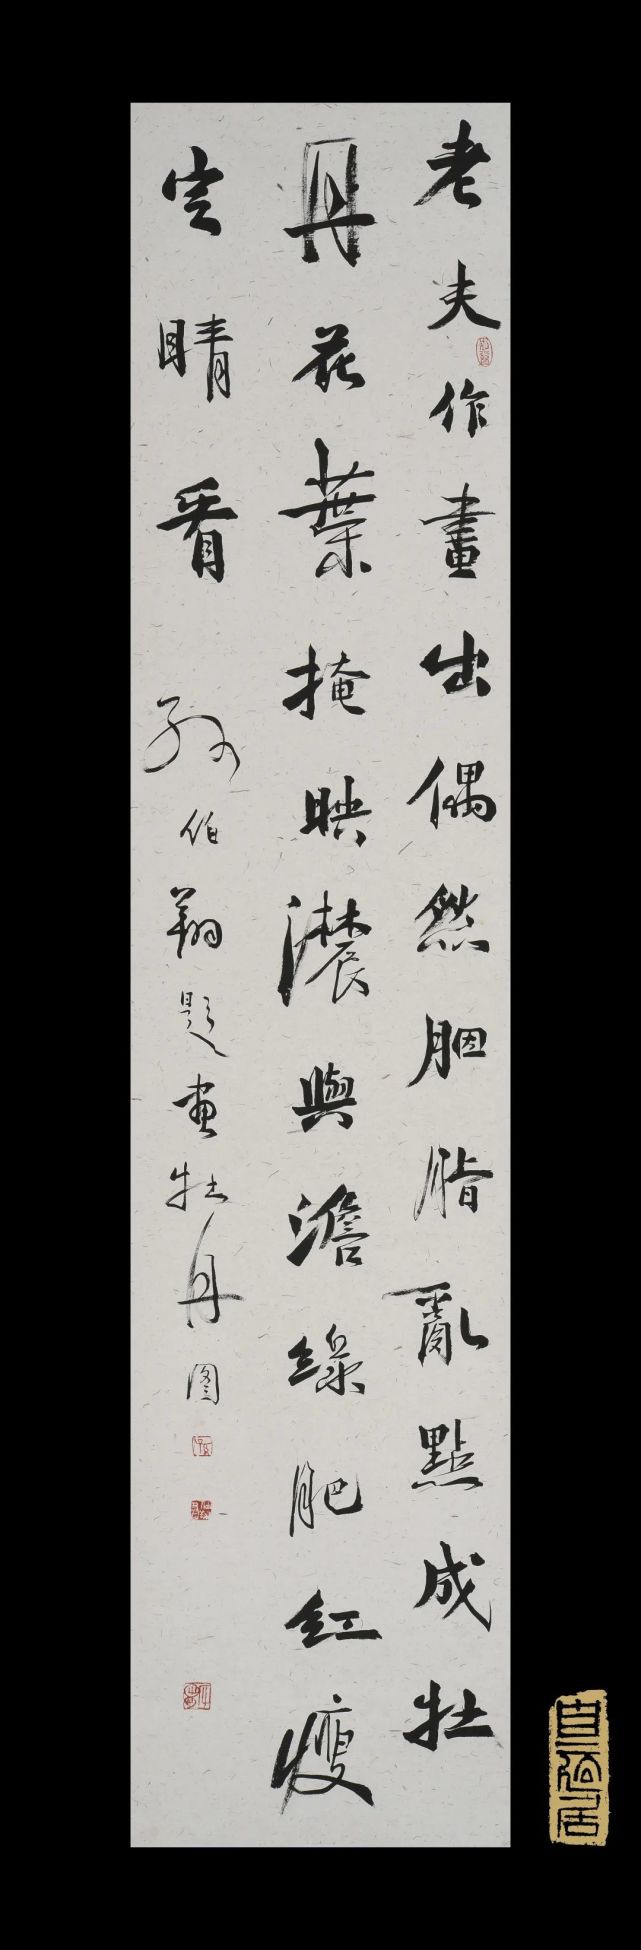 老夫作畫出偶然胭脂亂點成牡
丹花葉掩映濃與澹綠肥紅瘦
定睛看 孫伯翔題畫牡丹图